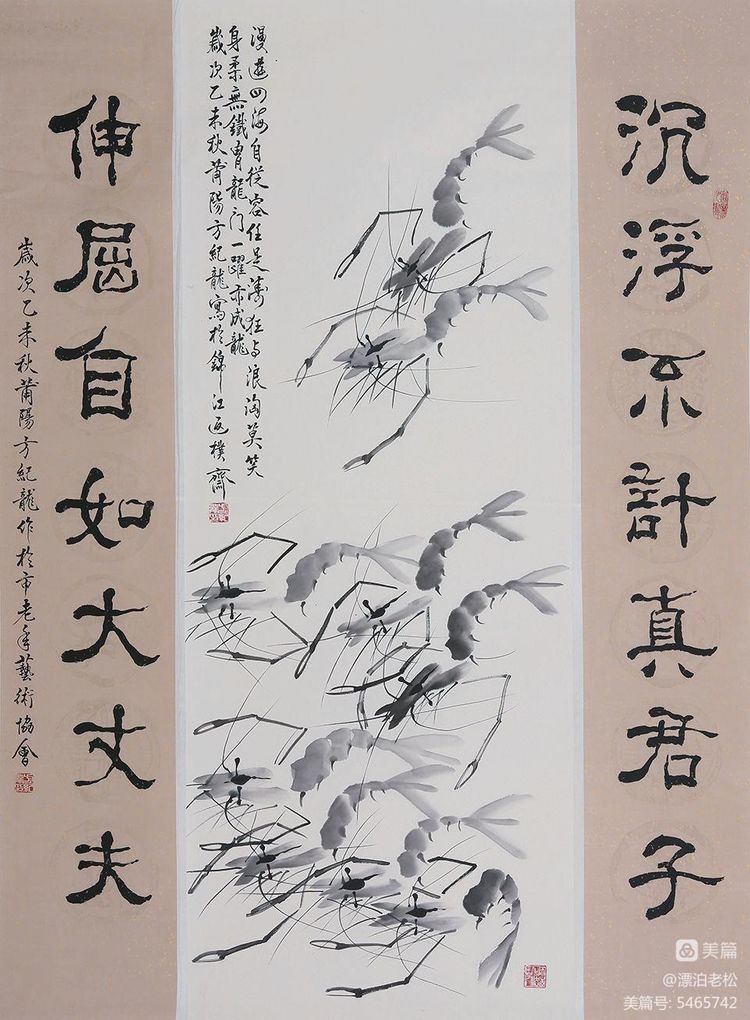 沉浮不計真君子
漫遊四海自從容任是濤狂与浪淘莫笑
身柔無鐵胄龍门一躍亦成龍
歲次乙未秋莆陽方紀龍寫於錦江返樸齋
伸屈自如大丈夫
歲次乙未秋莆陽方紀龍作於市老年藝術協會
美篇
@漂泊老松
美篇号: 5465742